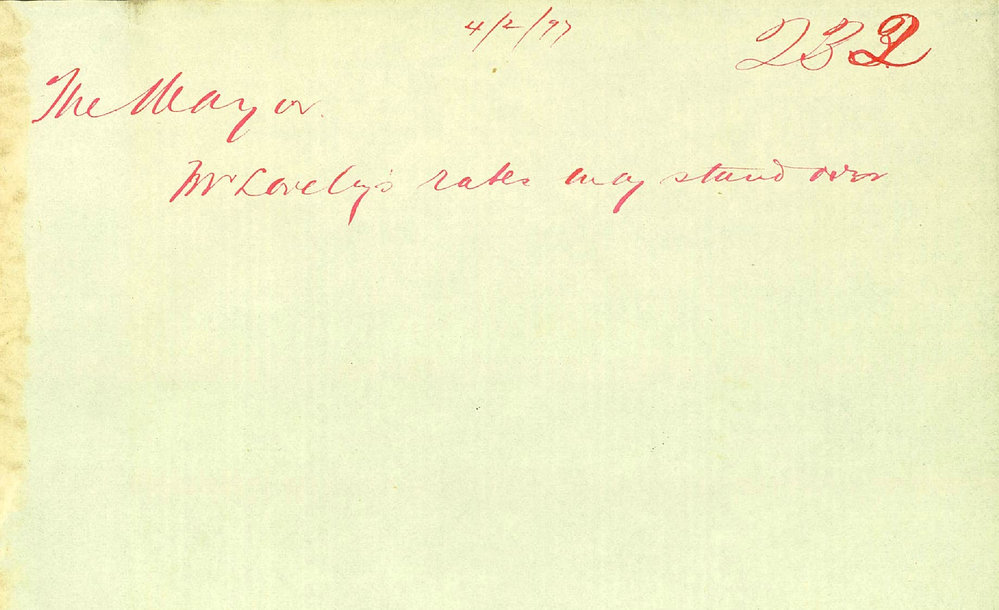 4/2/97
232
The Mayor.
Mr Lovely's rates may stand over